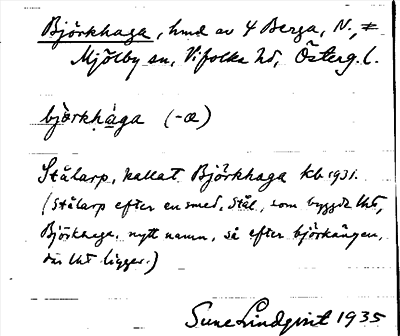 Björkhaga, hmd av 4 Berga, N., ≠
Mjölby sn, Vifolka hd, Österg. l.
björkhaga (-æ)
Stålarp, kallat Björkhaga kb 1931.
(Stålarp efter en smed, Stål, som byggde
Björkhaga, nytt namn, så efter björkängen,
där ligger.)
Sune Lindqvist 1935